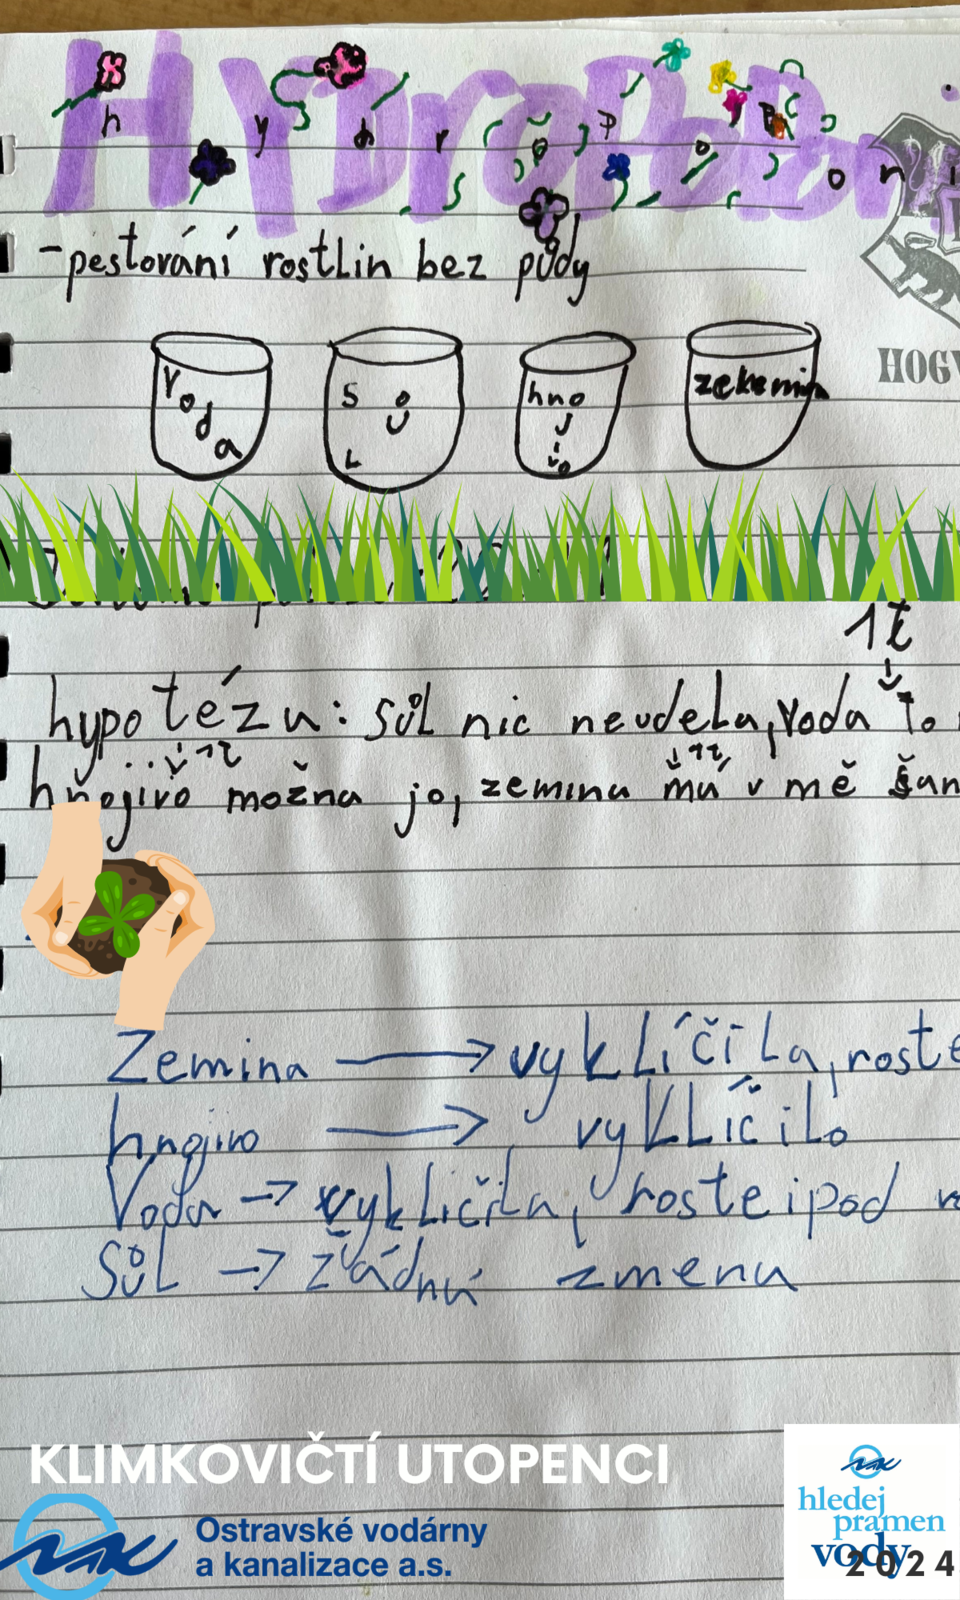 HYDroPoni
h y d r o p o n i
-pěstování rostlin bez půdy
Voda sůl hnojivo zemina
HOGW
1t
hypotéza: sůl nic neudela, voda to
1t 1t
hnojivo možna jo, zemina má v mě šan
Zemina → vyklíčila, roste
hnojivo → vyklíčilo
Voda → vykličila, roste i pod v
Sůl → žádná změna
KLIMKOVIČTÍ UTOPENCI
Ostravské vodárny
a kanalizace a.s.
hledej
pramen
vody
2024